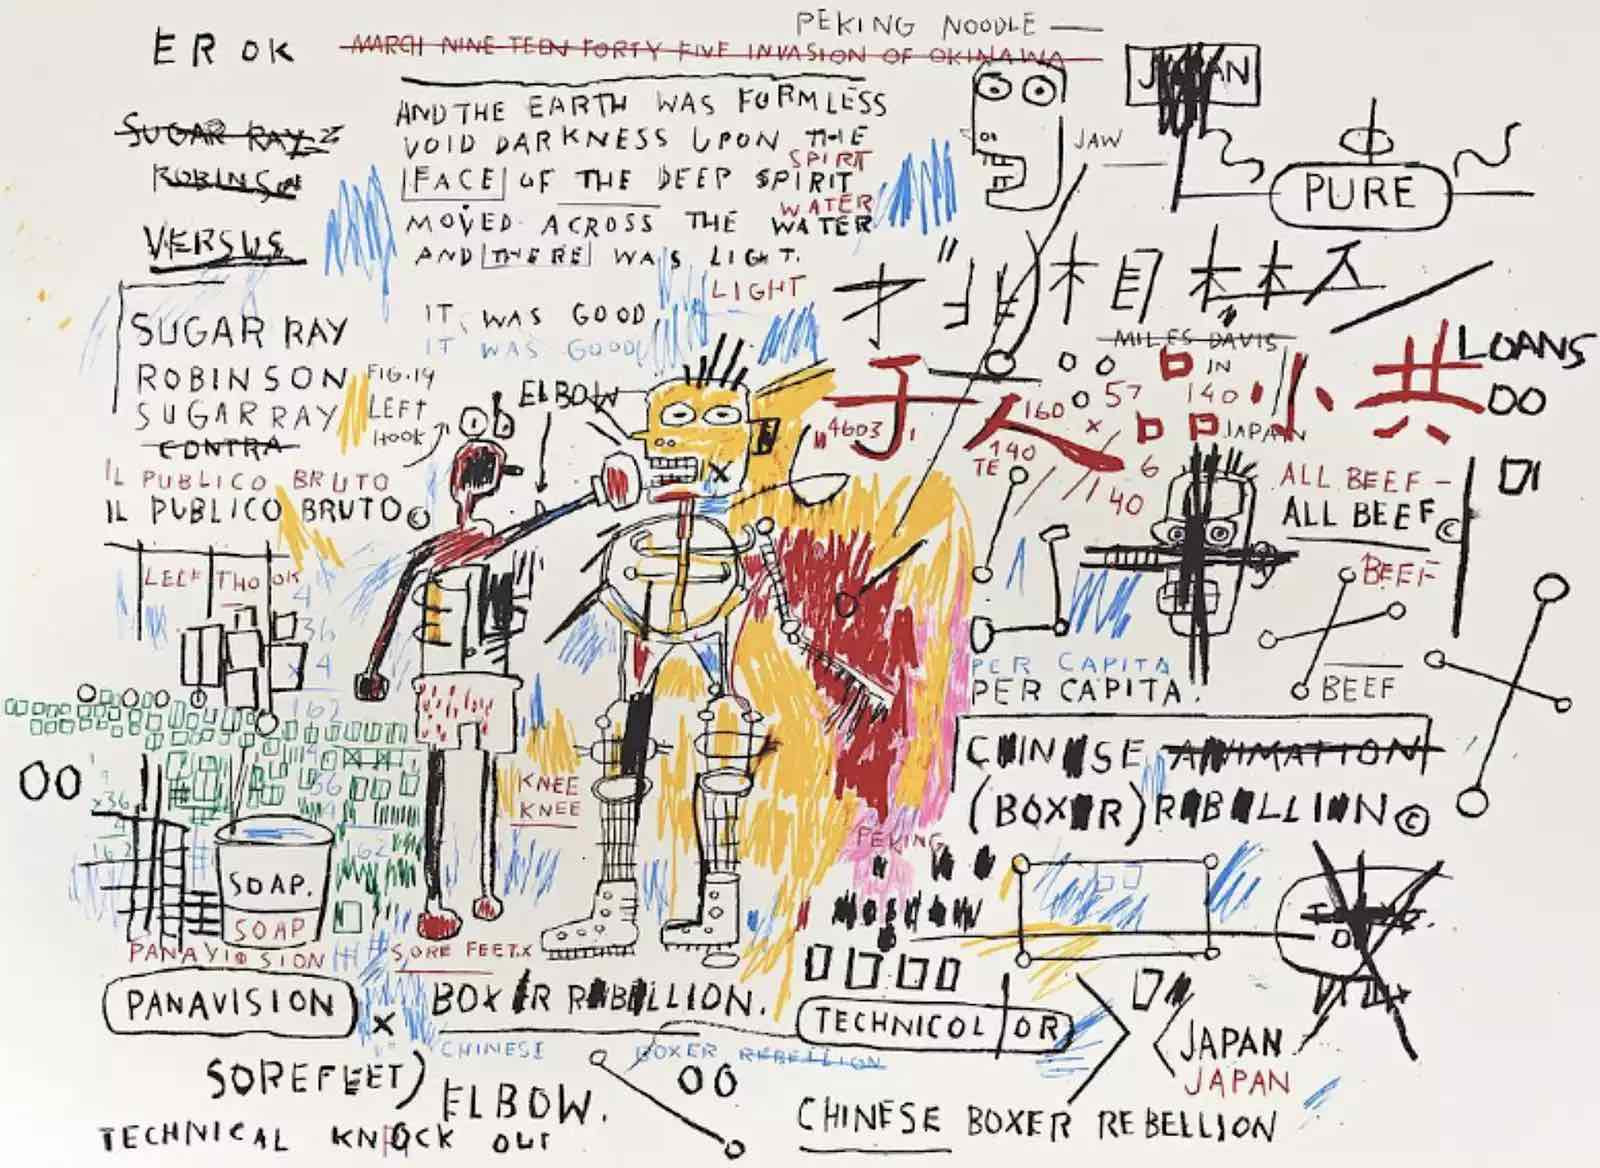 PEKING NOODLE
ER OK
MARCH NINETEEN FORTY FIVE INVASION OF OKINAWA
JAPAN
SUGAR RAY
ROBINSON
VERSUS
AND THE EARTH WAS FORMLESS
VOID DARKNESS UPON THE
SPIRIT
FACE OF THE DEEP SPIRIT
WATER
MOVED ACROSS THE WATER
AND THERE WAS LIGHT.
LIGHT
IT WAS GOOD
IT WAS GOOD
JAW
PURE
SUGAR RAY
ROBINSON
SUGAR RAY
CONTRA
IL PUBLICO BRUTO
IL PUBLICO BRUTO©
FIG. 19
LEFT
HOOK
ELBOW
MILES DAVIS
IN
140
57
160
x
4603
140
TE
6
140
JAPAN
子人
小共
LOANS
OO
ALL BEEF-
ALL BEEF©
BEEF
BEEF
PER CAPITA
PER CAPITA.
CHINESE ANIMATION
(BOXER) REBELLION©
36
x4
162
OO
x36
162
56
162
KNEE
KNEE
SOAP.
SOAP
PANAVISION
PANAVISION
SORE FEET.X
BOXER REBELLION.
CHINESE
BOXER REBELLION
PEKING
MOSCOW
TECHNICOLOR
JAPAN
JAPAN
SOREFEET)
ELBOW.
OO
TECHNICAL KNOCK OUT
CHINESE BOXER REBELLION